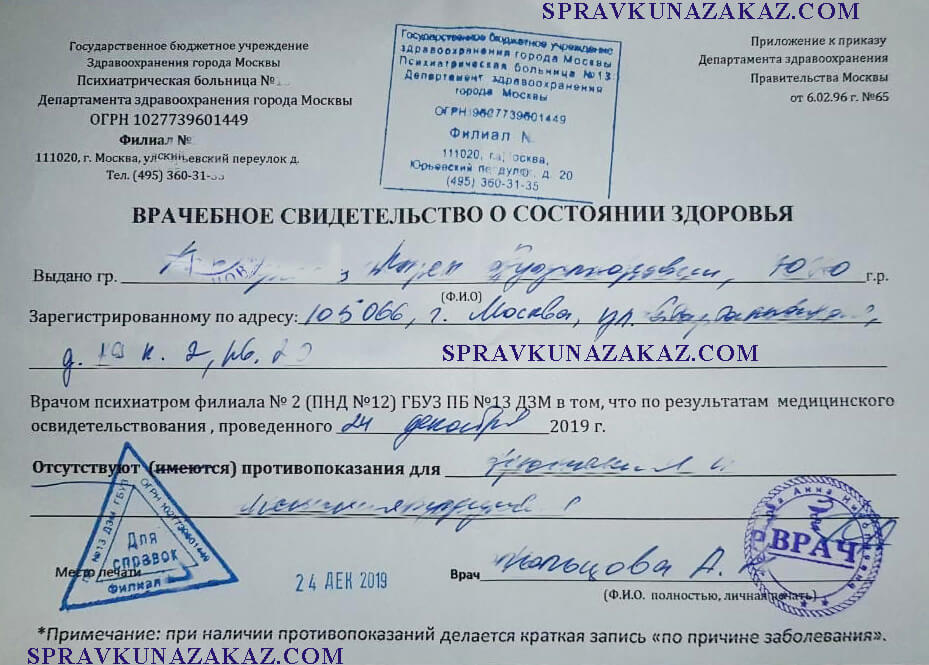 SPRAVKUNAZAKAZ.COM
Государственное бюджетное учреждение
Здравоохранения города Москвы
Психиатрическая больница №
Департамента здравоохранения города Москвы
ОГРН 1027739601449
Филиал №
111020, г. Москва, переулок д.
Тел. (495) 360-31-
Государственное бюджетное учреждение
здравоохранения города Москвы
Психиатрическая больница №13
Департамент здравоохранения
города Москвы
ОГРН 9627739601449
Филиал
111020, Москва,
Юрьевский д. 20
(495) 360-31-35
Приложение к приказу
Департамента здравоохранения
Правительства Москвы
от 6.02.96 г. №65
ВРАЧЕБНОЕ СВИДЕТЕЛЬСТВО О СОСТОЯНИИ ЗДОРОВЬЯ
Выдано гр. г.р.
(Ф.И.О)
Зарегистрированному по адресу: 105066, г. Москва, ул.
SPRAVKUNAZAKAZ.COM
д. 19 к. 2,
Врачом психиатром филиала № 2 (ПНД №12) ГБУЗ ПБ №13 ДЗМ в том, что по результатам медицинского
освидетельствования , проведенного 24 декабря 2019 г.
Отсутствуют (имеются) противопоказания для
№13 ДЗМ ГБУЗ
ОГРН 1027739601449
Для
справок
Филиал
Место печати
24 ДЕК 2019
Врач
(Ф.И.О. полностью, личная печать)
Анна
ВРАЧ
*Примечание: при наличии противопоказаний делается краткая запись «по причине заболевания».
SPRAVKUNAZAKAZ.COM